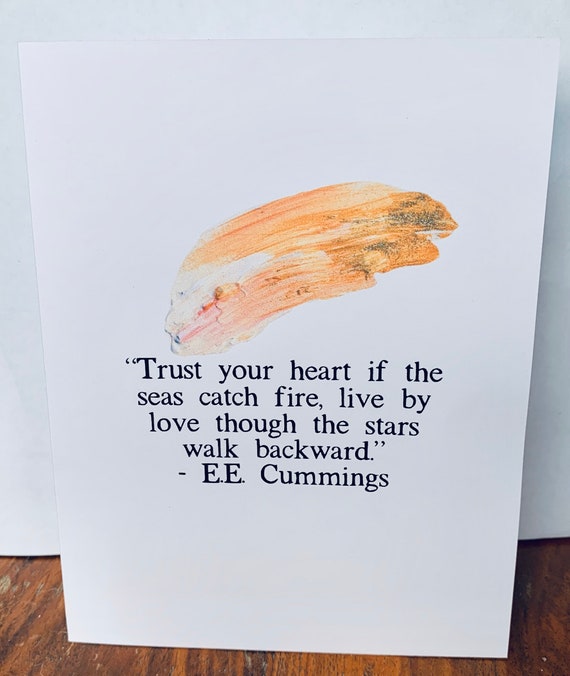 “Trust your heart if the
seas catch fire, live by
love though the stars
walk backward.”
- E.E. Cummings